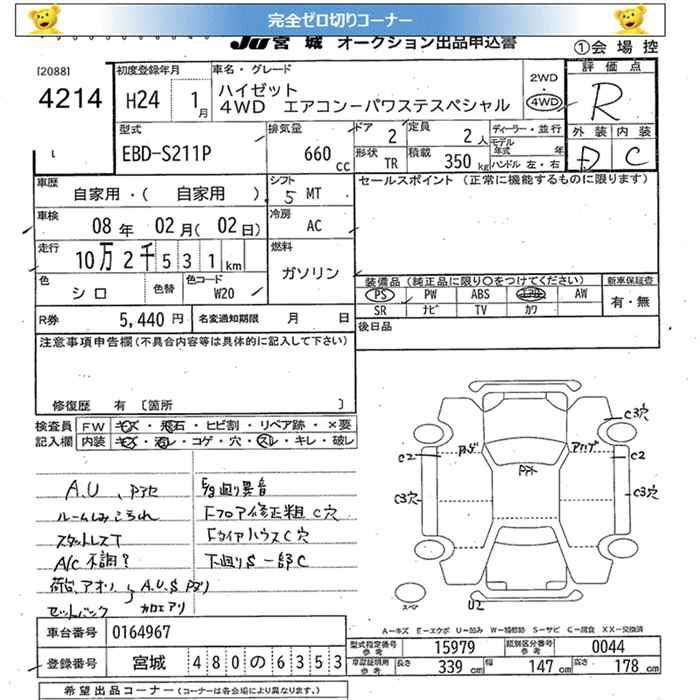 完全ゼロ切りコーナー
JU 宮城 オークション出品申込書 ①会場控
[2088]
4214
初度登録年月
H24 1月
車名・グレード
ハイゼット
4WD エアコンーパワステスペシャル
2WD
4WD
評価点
R
外装 内装
D C
型式
EBD-S211P
排気量
660 cc
ドア 2
定員 2人
ディーラー・並行
モデル年式 年
形状 TR
積載 350 kg
ハンドル 左・右
車歴
自家用・( 自家用 )
シフト
5 MT
セールスポイント (正常に機能するものに限ります)
車検
08年 02月(02日)
冷房
AC
走行
10万2千531km
燃料
ガソリン
色
シロ
色替
色コード
W20
装備品 (純正品に限り○をつけてください)
新車保証書
PS PW ABS AW
SR ナビ TV カワ
有・無
R券 5,440円
名変通知期限 月 日
後日品
注意事項申告欄(不具合内容等は具体的に記入して下さい)
修復歴 有 [箇所 ]
検査員記入欄
FW キズ・飛石・ヒビ割・リペア跡・×要
内装 キズ・汚レ・コゲ・穴・スレ・キレ・破レ
A.U、Pアセ
ルームしみこられ
スタットレスT
A/C 不調?
荷台、アオリ、A.U.S Pヌリ
セットバック カロエアリ
下廻り異音
Fフロア修正粗 C穴
Fタイアハウス C穴
下廻りS 一部C
C3穴
アトゲ
アトゲ
C2
C2
Pアト
C3穴
C3穴
スペア
U2
A-キズ E-エクボ U-凹み W-補修跡 S-サビ C-腐食 XX-交換済
車台番号 0164967
登録番号 宮城 480の6353
型式指定番号参考 15979
類別区分番号参考 0044
車庫証明用参考 長さ 339cm 幅 147cm 高さ 178cm
希望出品コーナー (コーナーは各会場により異なります。)